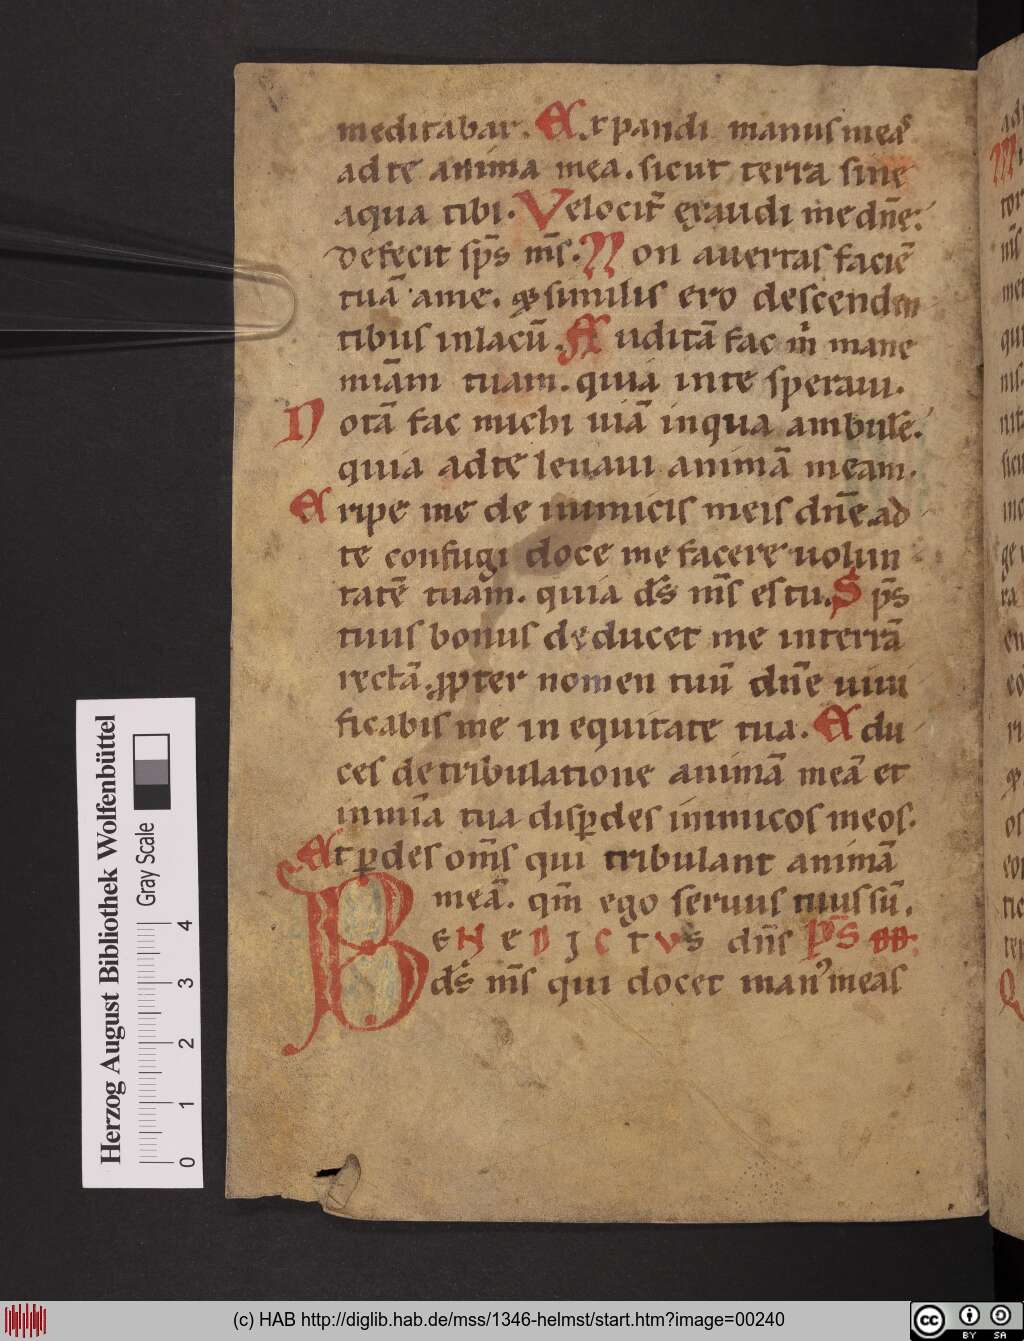 meditabar. Expandi manus meas
ad te anima mea. sicut terra sine
aqua tibi. Velocit̄ exaudi me dn̄e:
defecit sp̄s m̄s. Non auertas faciē
tuā ame. & similis ero descenden
tibus inlacū. Auditā fac m̄ mane
mīam tuam. quia inte speraui.
Notā fac michi uiā inqua ambulē.
quia adte leuaui animā meam.
Eripe me de inimicis meis dn̄e. ad
te confugi doce me facere uolun
tatē tuam. quia ds̄ m̄s es tu. Sp̄s
tuus bonus deducet me interrā
rectā. ꝓpter nomen tuū dn̄e uiui
ficabis me in equitate tua. Edu
ces de tribulatione animā meā et
inmīa tua disꝑdes inimicos meos.
Et ꝑdes om̄s qui tribulant animā
meā. qm̄ ego seruus tuus sū.
BENEDICTVS dn̄s PS̄
ds̄ m̄s qui docet manꝰ meas
Herzog August Bibliothek Wolfenbüttel
Gray Scale
0 1 2 3 4
(c) HAB http://diglib.hab.de/mss/1346-helmst/start.htm?image=00240
cc BY SA